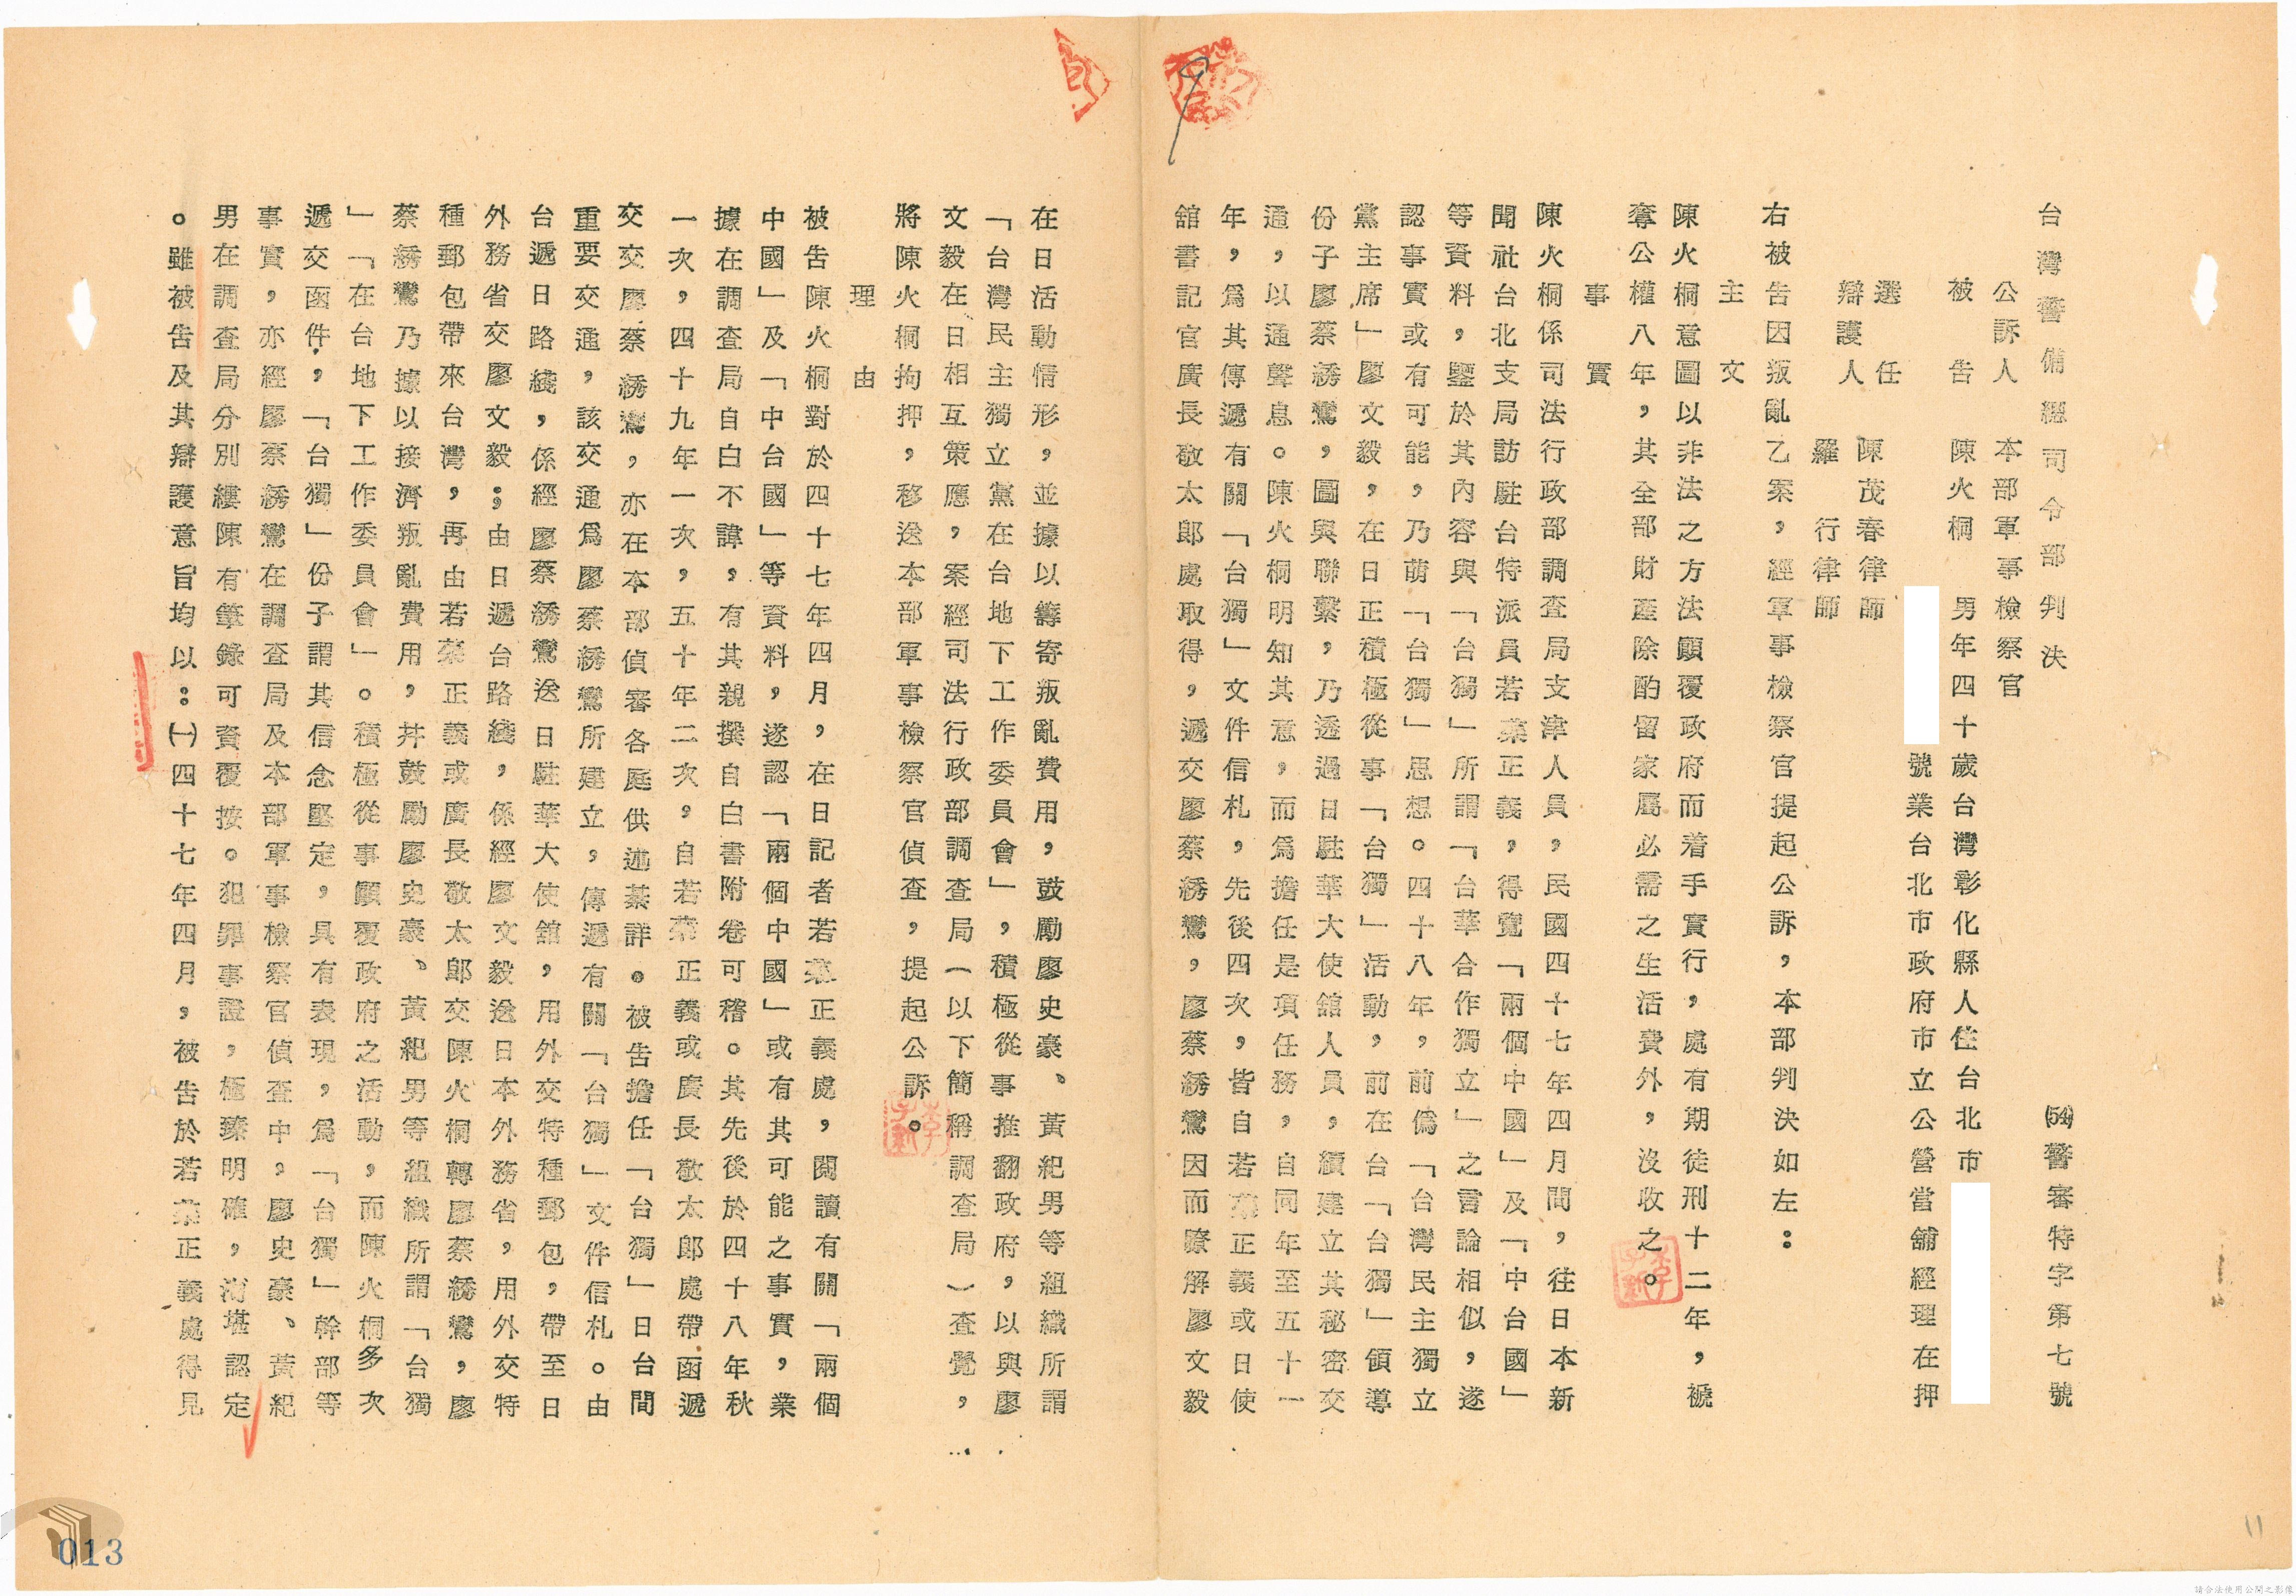 台灣警備總司令部判決
(54)警審特字第七號
公訴人　本部軍事檢察官
被告　陳火桐　男年四十歲台灣彰化縣人住台北市
號業台北市政府市立公營當舖經理在押
選任
辯護人
陳茂春律師
羅行律師
右被告因叛亂乙案，經軍事檢察官提起公訴，本部判決如左：
主文
陳火桐意圖以非法之方法顚覆政府而着手實行，處有期徒刑十二年，褫
奪公權八年，其全部財產除酌留家屬必需之生活費外，沒收之。
事實
陳火桐係司法行政部調查局支津人員，民國四十七年四月間，往日本新
聞社台北支局訪駐台特派員若菜正義，得覽「兩個中國」及「中台國」
等資料，鑒於其內容與「台獨」所謂「台華合作獨立」之言論相似，遂
認事實或有可能，乃萌「台獨」思想。四十八年，前僞「台灣民主獨立
黨主席」廖文毅，在日正積極從事「台獨」活動，前在台「台獨」領導
份子廖蔡綉鸞，圖與聯繫，乃透過日駐華大使館人員，續建立其秘密交
通，以通聲息。陳火桐明知其意，而爲擔任是項任務，自同年至五十一
年，爲其傳遞有關「台獨」文件信札，先後四次，皆自若菜正義或日使
舘書記官廣長敬太郎處取得，遞交廖蔡綉鸞，廖蔡綉鸞因而瞭解廖文毅
在日活動情形，並據以籌寄叛亂費用，鼓勵廖史豪、黃紀男等組織所謂
「台灣民主獨立黨在台地下工作委員會」，積極從事推翻政府，以與廖
文毅在日相互策應，案經司法行政部調查局（以下簡稱調查局）查覺，
將陳火桐拘押，移送本部軍事檢察官偵查，提起公訴。
理由
被告陳火桐對於四十七年四月，在日記者若菜正義處，閱讀有關「兩個
中國」及「中台國」等資料，遂認「兩個中國」或有其可能之事實，業
據在調查局自白不諱，有其親撰自白書附卷可稽。其先後於四十八年秋
一次，四十九年一次，五十年二次，自若菜正義或廣長敬太郎處帶函遞
交交廖蔡綉鸞，亦在本部偵審各庭供述綦詳。被告擔任「台獨」日台間
重要交通，該交通爲廖蔡綉鸞所建立，傳遞有關「台獨」文件信札。由
台遞日路綫，係經廖蔡綉鸞送日駐華大使館，用外交特種郵包，帶至日
外務省交廖文毅；由日遞台路綫，係經廖文毅送日本外務省，用外交特
種郵包帶來台灣，再由若菜正義或廣長敬太郎交陳火桐轉廖蔡綉鸞，廖
蔡綉鸞乃據以接濟叛亂費用，幷鼓勵廖史豪、黃紀男等組織所謂「台獨
」「在台地下工作委員會」。積極從事顚覆政府之活動，而陳火桐多次
遞交函件，「台獨」份子謂其信念堅定，具有表現，爲「台獨」幹部等
事實，亦經廖蔡綉鸞在調查局及本部軍事檢察官偵查中，廖史豪、黃紀
男在調查局分別縷陳有筆錄可資覆按。犯罪事證，極臻明確，洵堪認定
。雖被告及其辯護意旨均以：㈠四十七年四月，被告於若菜正義處得見
013
11
請合法使用公開之影像